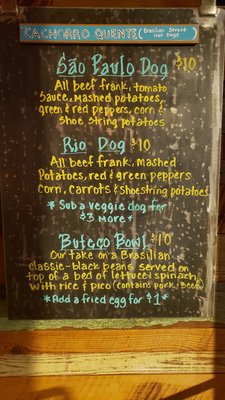 CACHORRO QUENTE (Brasilian Street
Hot Dogs)
São Paulo Dog $10
All beef frank, tomato
Sauce, mashed potatoes,
green & red peppers, corn &
Shoe string potatoes
Rio Dog $10
All beef frank, mashed
Potatoes, red & green peppers
Corn, carrots & shoestring potatoes
*Sub a veggie dog for
$3 more*
Buteco Bowl $10
Our take on a Brasilian
classic-black beans served on
top of a bed of lettuce/spinach
with rice & pico (contains pork/Beef)
*Add a fried egg for $1*